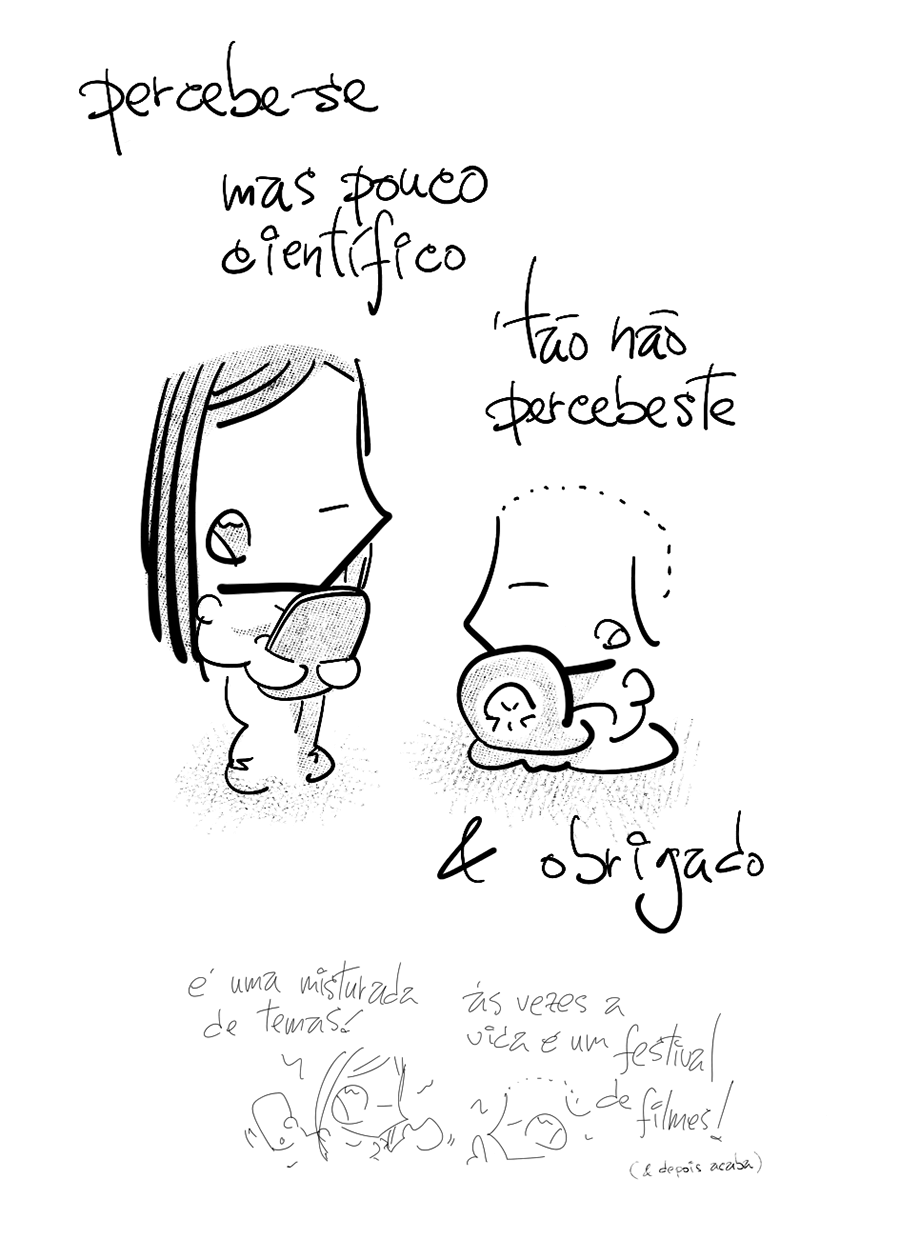 percebe-se
mas pouco
científico
'tão não
percebeste
& obrigado
é uma misturada
de temas!
ás vezes a
vida é um festival
de filmes!
(& depois acaba)